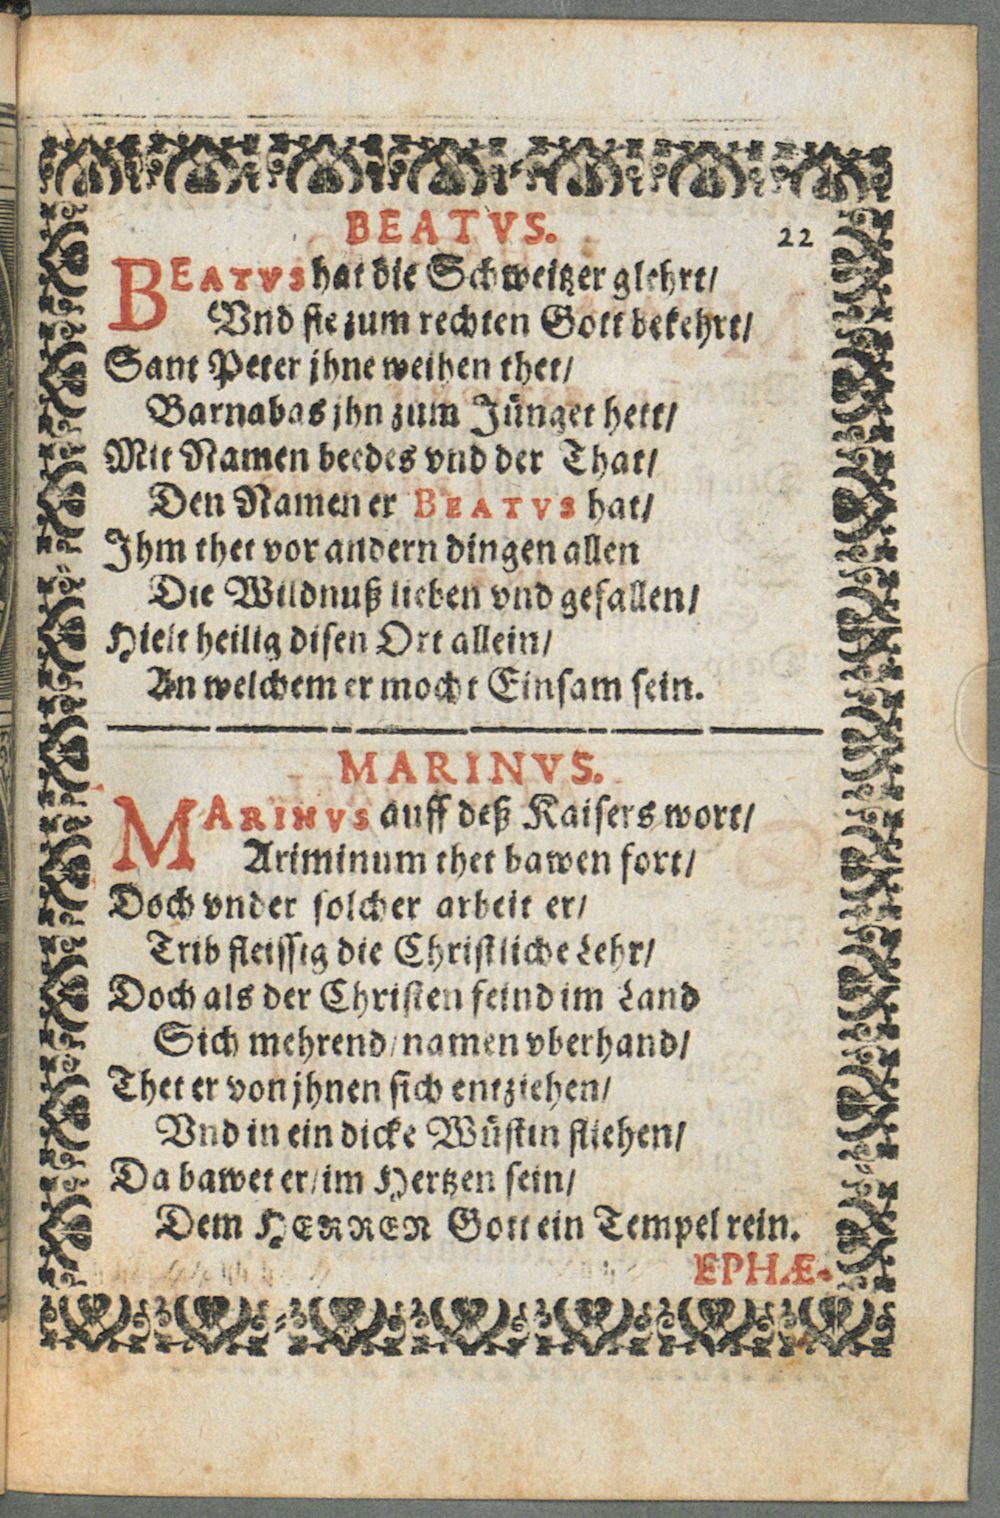 BEATVS.
22
BEATVS hat die Schweitzer glehrt/
Vnd sie zum rechten Gott bekehrt/
Sant Peter jhne weihen thet/
Barnabas jhn zum Jünger hett/
Mit Namen beedes vnd der That/
Den Namen er BEATVS hat/
Ihm thet vor andern dingen allen
Die Wildnuß lieben vnd gefallen/
Hielt heilig disen Ort allein/
An welchem er mocht Einsam sein.
MARINVS.
MARINVS auff deß Kaisers wort/
Ariminum thet bawen fort/
Doch vnder solcher arbeit er/
Trib fleissig die Christliche Lehr/
Doch als der Christen feind im Land
Sich mehrend/namen vberhand/
Thet er von jhnen sich entziehen/
Vnd in ein dicke Wüstin fliehen/
Da bawet er/im Hertzen sein/
Dem HERREN Gott ein Tempel rein.
EPHÆ-